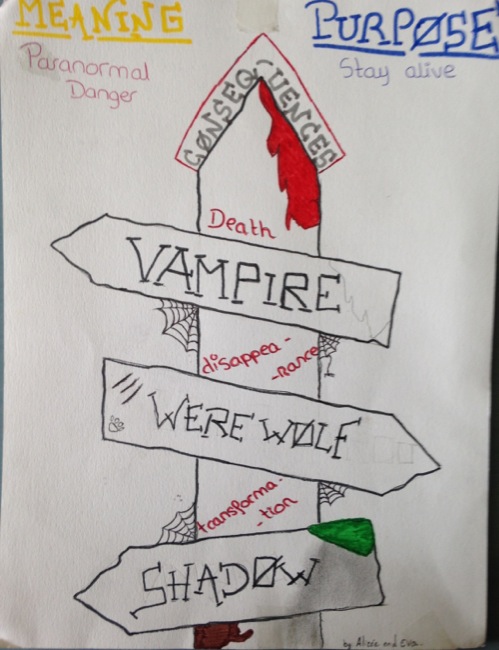 MEANING
Paranormal
Danger
PURPØSE
Stay alive
CØNSEQUENCES
Death
VAMPIRE
disappea-
-rance
WEREWØLF
transforma-
-tion
SHADØW
by Alizée and Eva